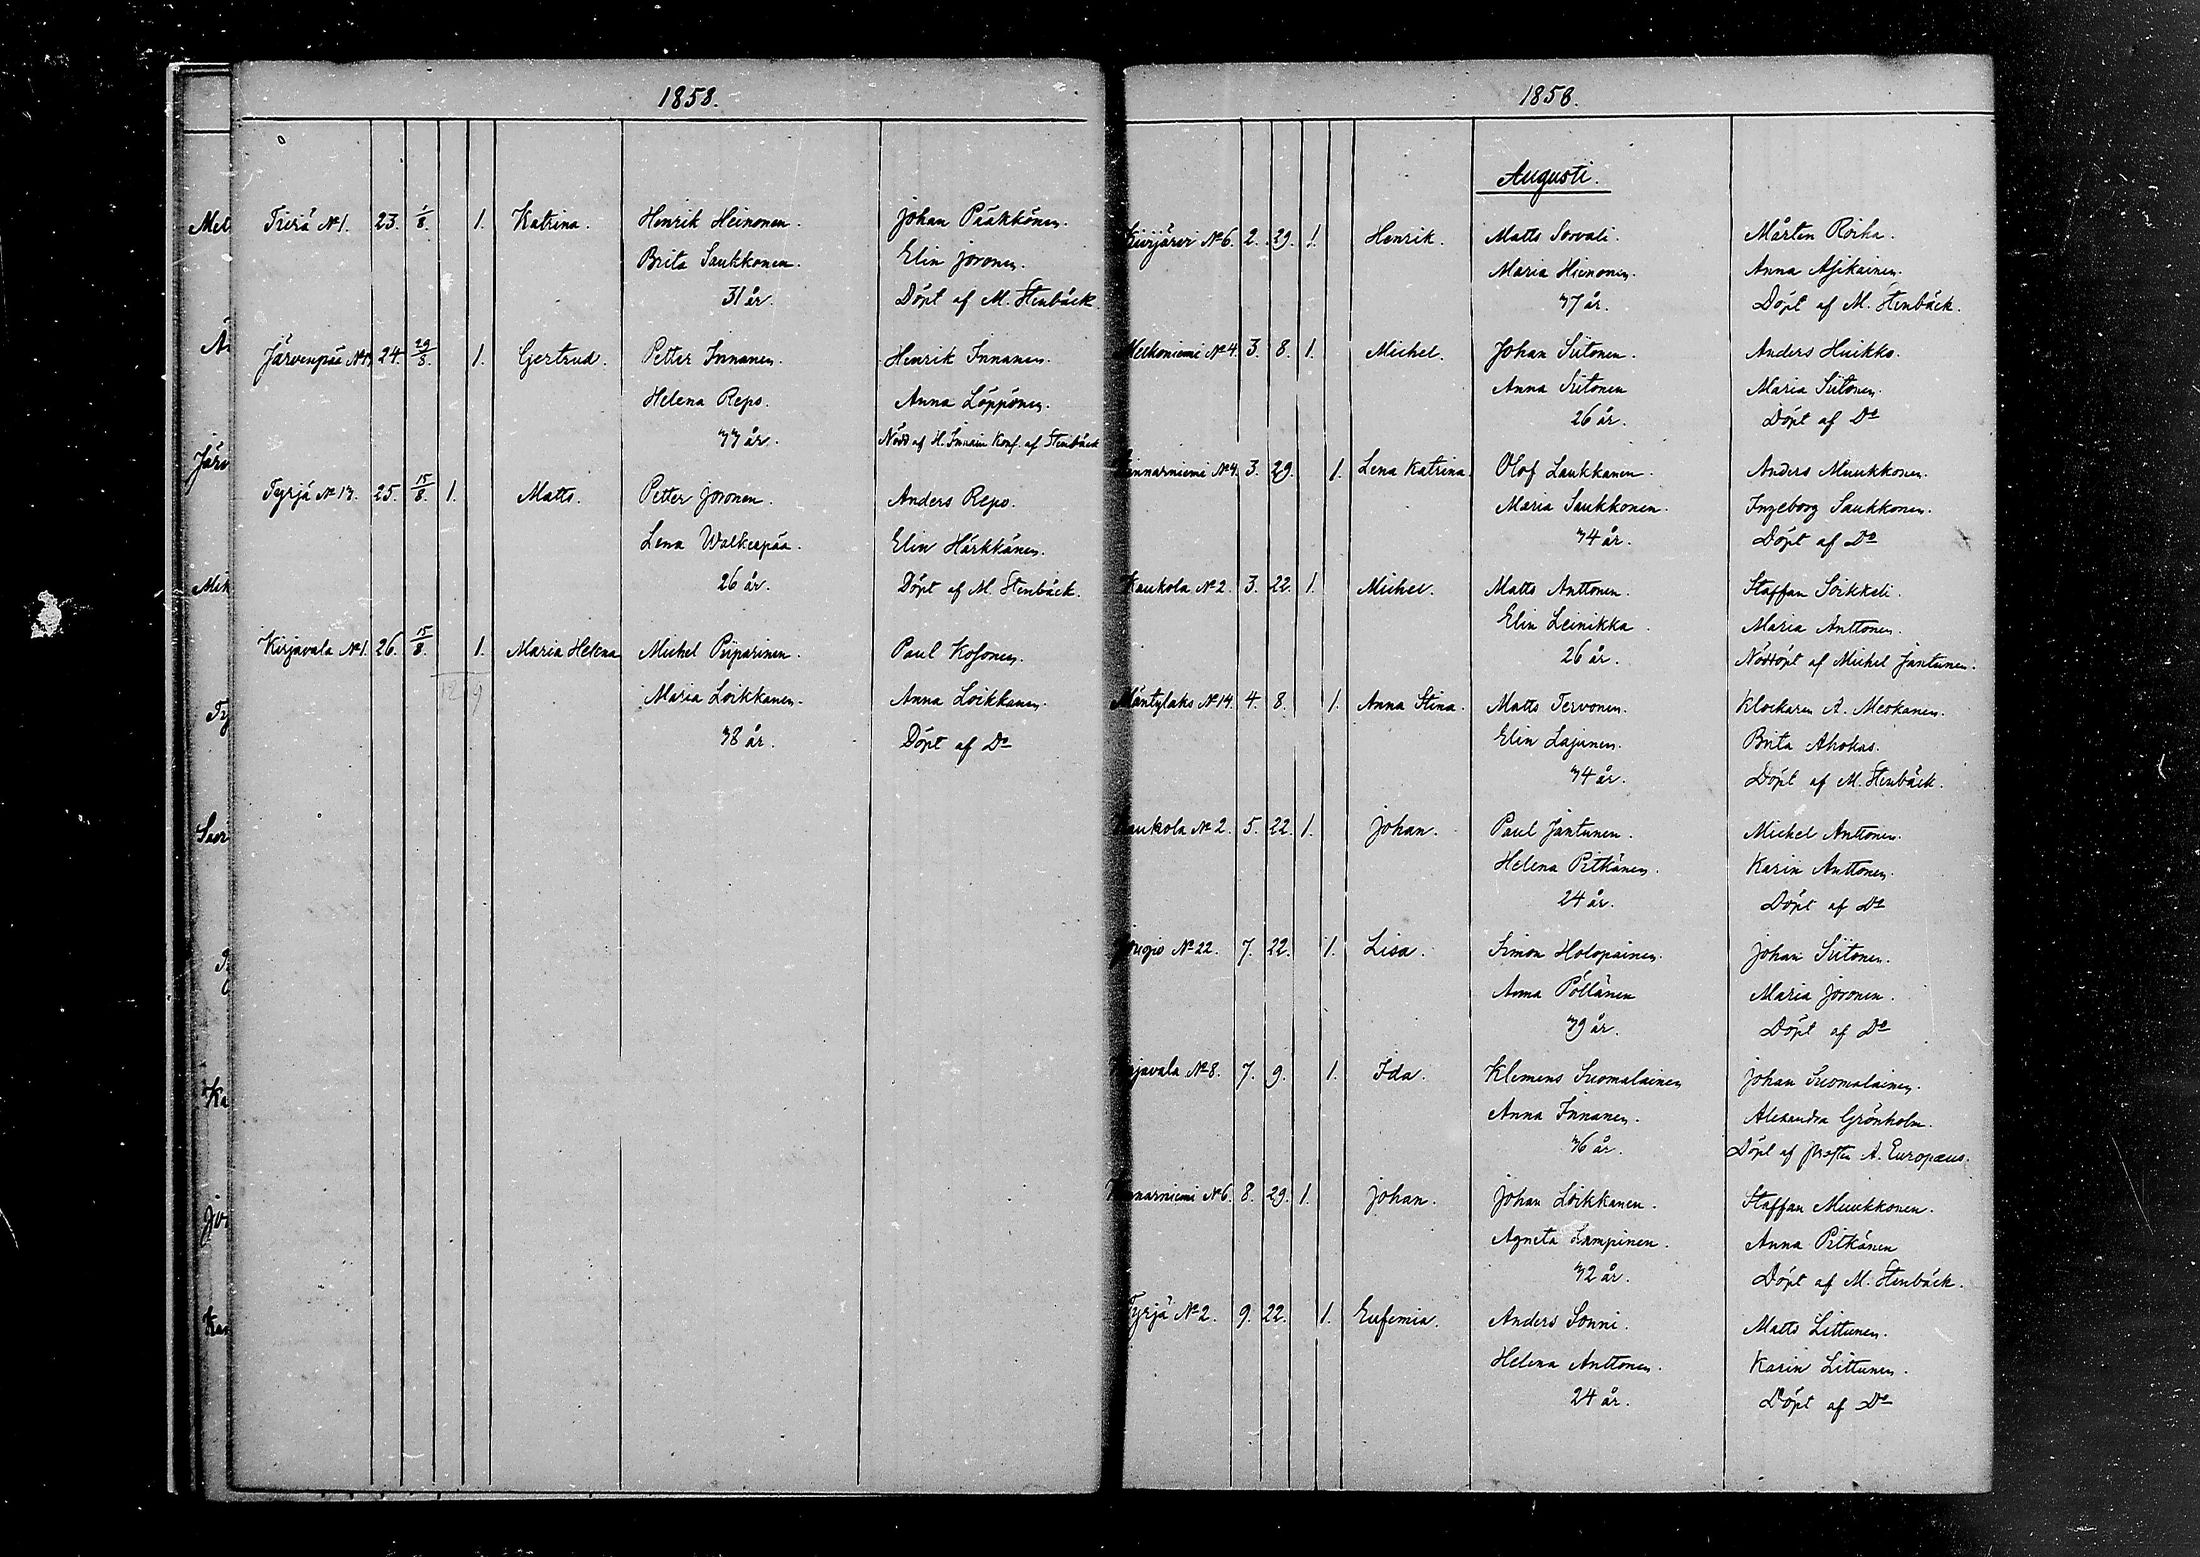 1858.
Tirjä № 1. 23. 1/8. 1. Katrina. Henrik Heinonen. Johan Pääkkönen.
Brita Saukkonen. Elin Joronen.
31 år. Döpt af M. Stenbäck.
Järvenpää 24. 29/8. 1. Gertrud. Petter Innanen. Henrik Innanen.
Helena Repo. Anna Löppönen.
33 år. Nödd af H. Innain Konf. af Stenbäck
Tyrjä № 13. 25. 15/8. 1. Matts. Petter Joronen. Anders Repo.
Lena Walkeapää. Elin Härkkänen.
26 år. Döpt af M. Stenbäck.
Kirjavala № 1. 26. 15/8. 1. Maria Helena Michel Piiparinen. Paul Kosonen.
12 9
Maria Loikkanen. Anna Loikkanen.
38 år. Döpt af Do
1858.
Augusti.
№ 6. 2. 29. 1. Henrik. Matts Sorvali. Mårten Roiha.
Maria Hienonen. Anna Asikainen.
37 år. Döpt af M. Stenbäck.
№ 4. 3. 8. 1. Michel. Johan Siitonen. Anders Huikko.
Anna Siitonen Maria Siitonen.
26 år. Döpt af Do
№ 4. 3. 29. 1. Lena Katrina Olof Laukkanen. Anders Muukkonen.
Maria Saukkonen. Ingeborg Saukkonen.
34 år. Döpt af Do
Kaukola № 2. 3. 22. 1. Michel. Matts Anttonen. Staffan Soikkeli.
Elin Leinikka. Maria Anttonen.
26 år. Nöddöpt af Michel Jantunen.
Mäntylaks № 14. 4. 8. 1. Anna Stina. Matts Tervonen. Klockaren A. Meskanen.
Elin Lajunen. Brita Ahokas.
34 år. Döpt af M. Stenbäck.
Kaukola № 2. 5. 22. 1. Johan. Paul Jantunen. Michel Anttonen.
Helena Pitkänen. Karin Anttonen.
24 år. Döpt af Do
№ 22. 7. 22. 1. Lisa. Simon Holopainen. Johan Siitonen.
Anna Pöllänen Maria Joronen.
39 år. Döpt af Do
Kirjavala № 8. 7. 9. 1. Ida. Klemens Suomalainen Johan Suomalainen.
Anna Innanen. Alexandra Grönholm.
36 år. Döpt af Prosten A. Europæus.
№ 6. 8. 29. 1. Johan. Johan Loikkanen. Staffan Muukkonen.
Agneta Lampinen. Anna Pitkänen
32 år. Döpt af M. Stenbäck.
Tyrjä № 2. 9. 22. 1. Eufemia. Anders Sonni. Matts Littunen.
Helena Anttonen. Karin Littunen.
24 år. Döpt af Do